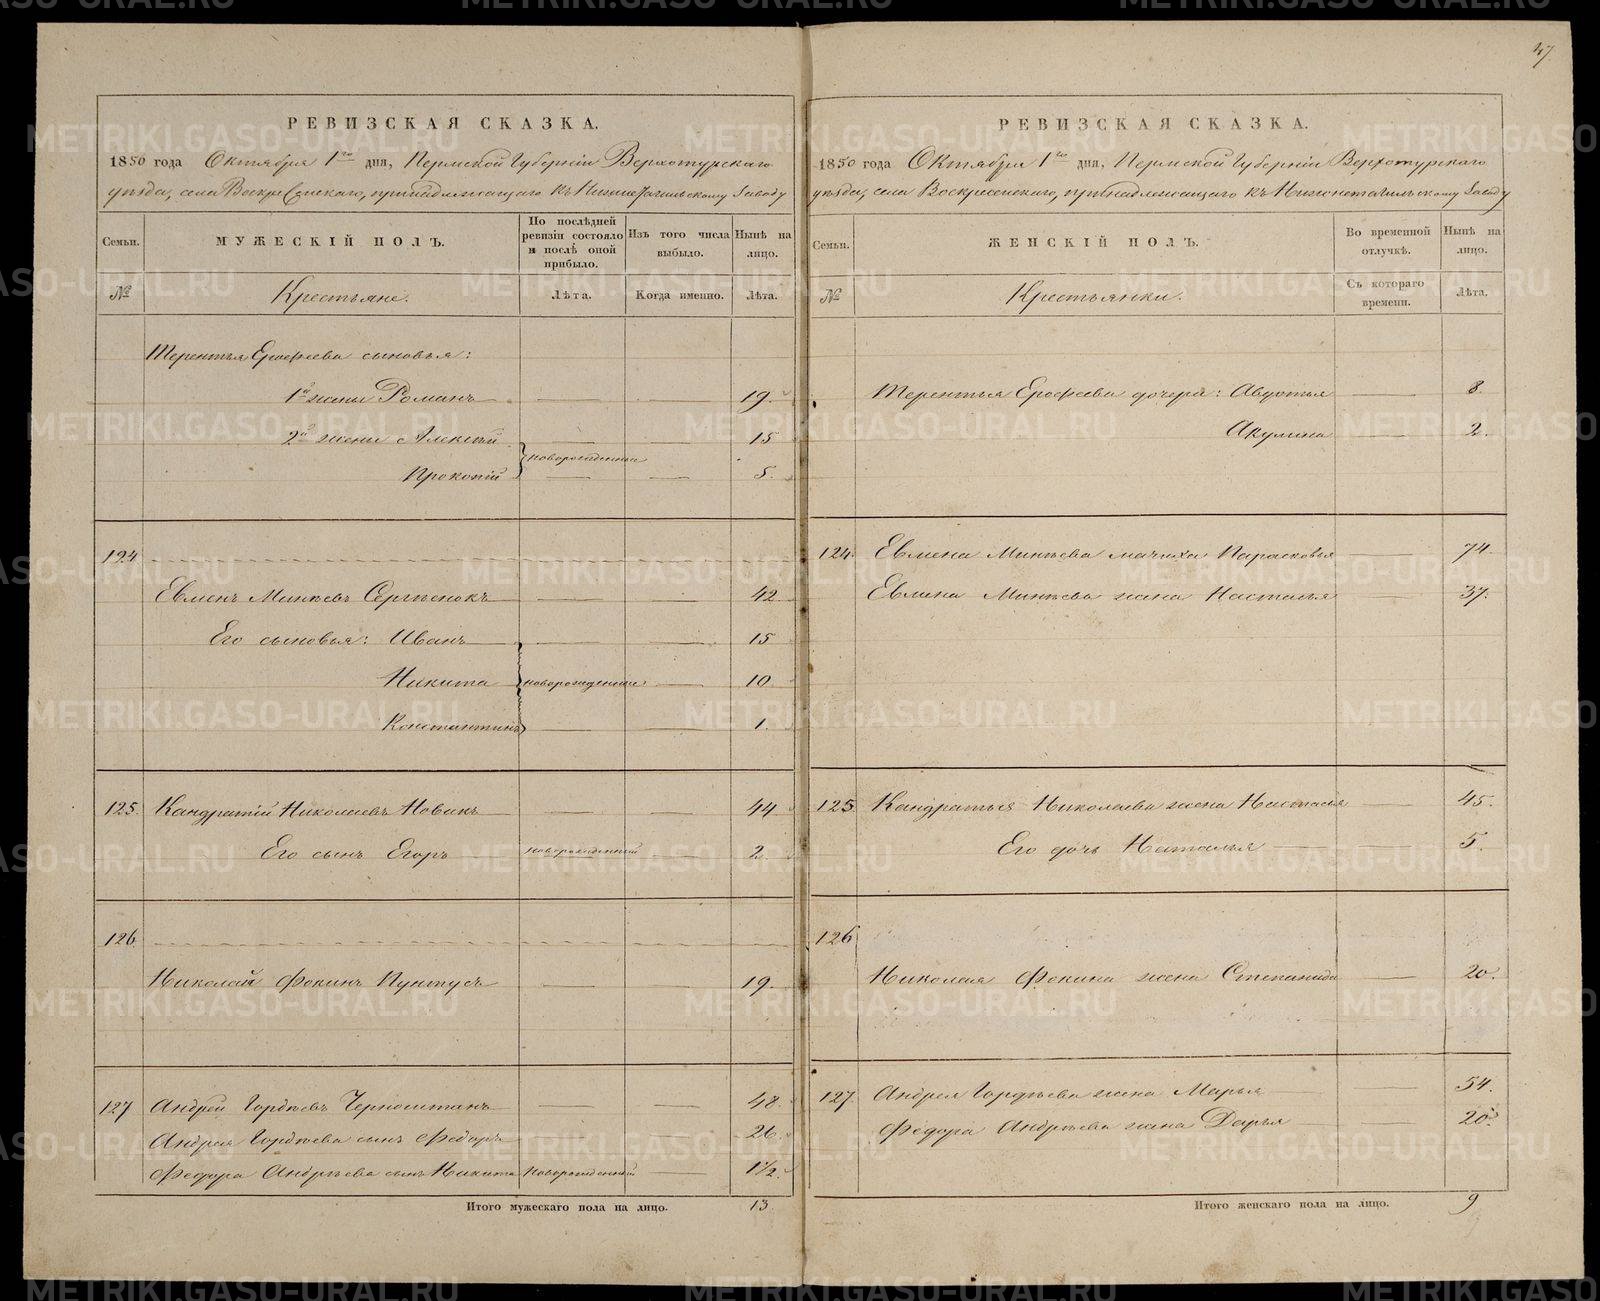 47
РЕВИЗСКАЯ СКАЗКА.
1850 года Октября 1го дня, Пермской Губернiи Верхотурскаго
уѣзда, села Воскресенскаго, принадлежащаго къ Нижнетагильскому Заводу
Семьи.
МУЖЕСКIЙ ПОЛЪ.
По послѣдней ревизiи состояло и послѣ оной прибыло.
Изъ того числа выбыло.
Нынѣ на лицо.
№
Крестьяне.
Лѣта.
Когда именно.
Лѣта.
Терентья Ерофеева сыновья:
1й жены Романъ 19.
2й жены Алексѣй 15
новорожденные
Прокопiй 5.
124
Евменъ Минѣевъ Сергѣенокъ 42
Его сыновья: Иванъ 15
Никита новорожденные 10
Константинъ 1.
125. Кандратiй Николаевъ Новакъ 44
Его сынъ Егоръ новорожденный 2
126.
Николай Фокинъ Пунтусъ 19.
127 Андрей Гордѣевъ Черноштанъ 48.
Андрея Гордѣева сынъ Федоръ 26.
Федора Андрѣева сынъ Никита новорожденный 1 1/2.
Итого мужескаго пола на лицо. 13
РЕВИЗСКАЯ СКАЗКА.
1850 года Октября 1го дня, Пермской Губернiи Верхотурскаго
уѣзда, села Воскресенскаго, принадлежащаго къ Нижнетагильскому Заводу
Семьи.
ЖЕНСКIЙ ПОЛЪ.
Во временной отлучкѣ.
Нынѣ на лицо.
№
Крестьянки.
Съ котораго времени.
Лѣта.
Терентья Ерофеева дочери: Авдотья 8.
Акулина 2.
124. Евмена Минѣева мачиха Парасковья 74.
Евмена Минѣева жена Настасья 37.
125 Кандратья Николаева жена Настасья 45.
Его дочь Наталья 5.
126
Николая Фокина жена Степанида 20.
127. Андрея Гордѣева жена Марья 54.
Федора Андрѣева жена Дарья 20.
Итого женскаго пола на лицо. 9
METRIKI.GASO-URAL.RU